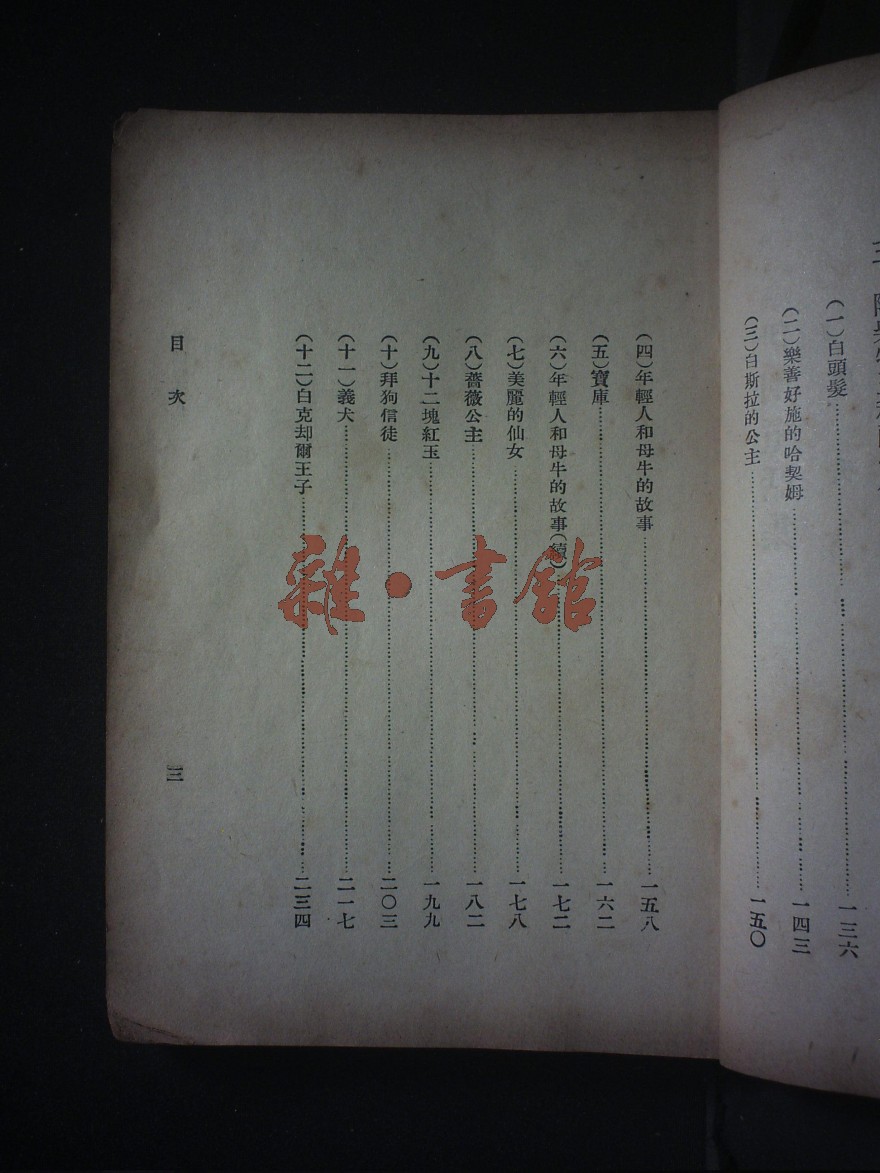 (一)白頭髮……一三六
(二)樂善好施的哈契姆……一四三
(三)白斯拉的公主……一五〇
(四)年輕人和母牛的故事……一五八
(五)寶庫……一六二
(六)年輕人和母牛的故事(續)……一七二
(七)美麗的仙女……一七八
(八)薔薇公主……一八二
(九)十二塊紅玉……一九九
(十)拜狗信徒……二〇三
(十一)義犬……二一七
(十二)白克却爾王子……二三四
目次 三
雜·書館